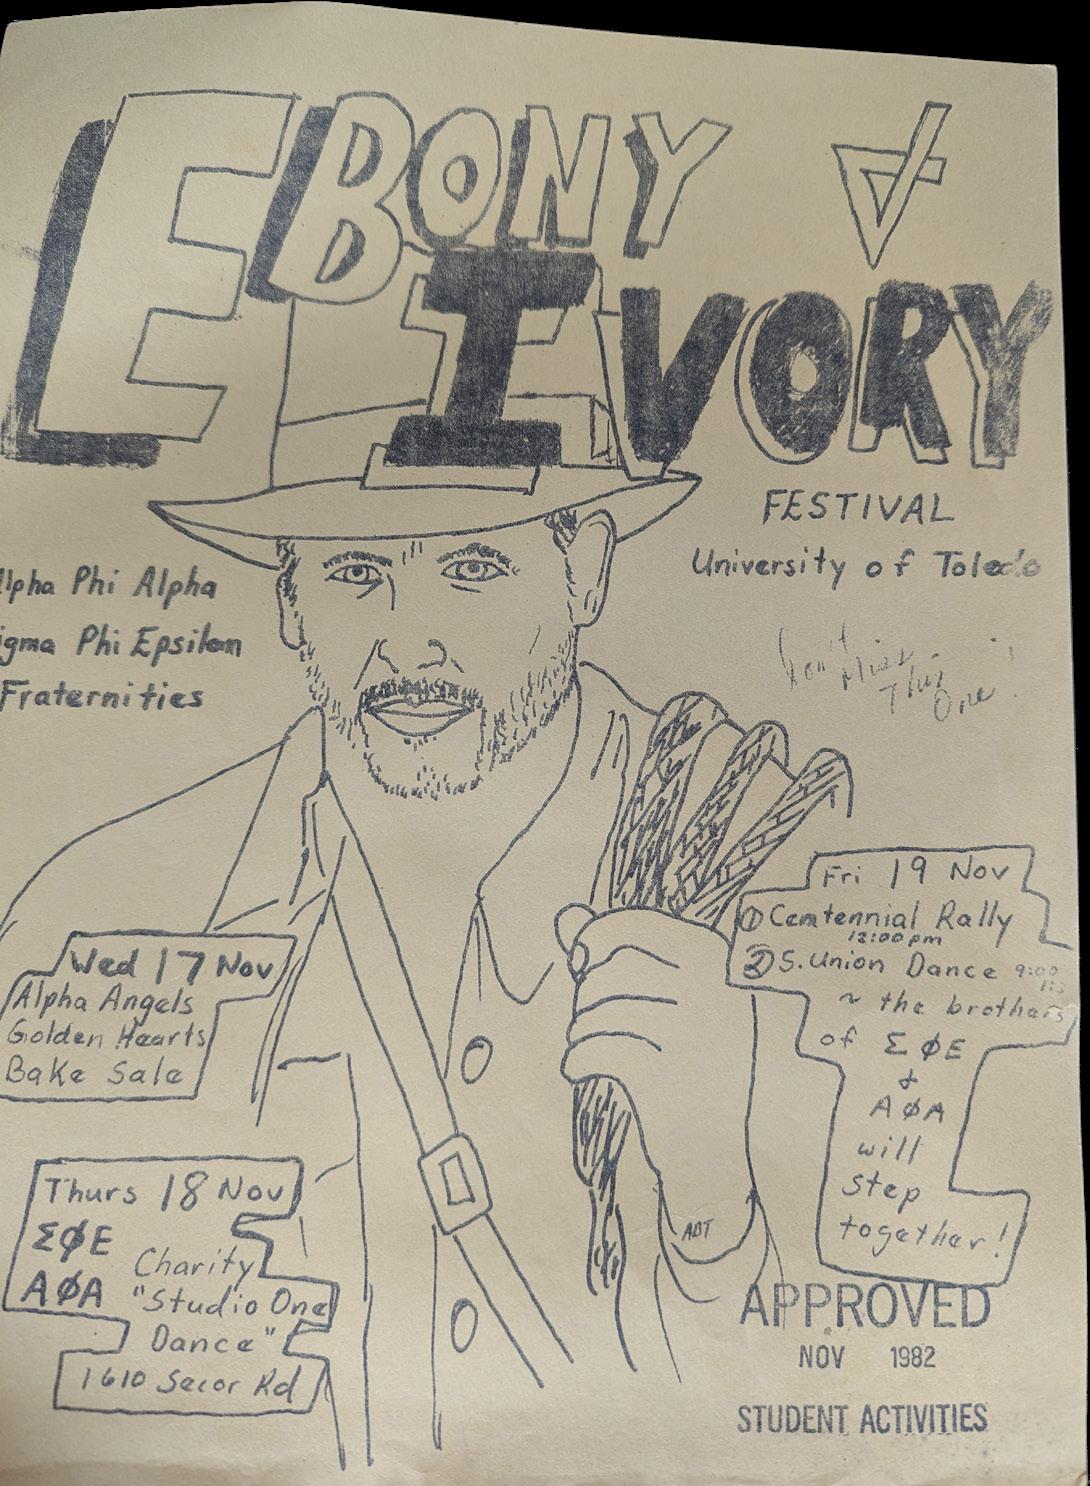 EBONY
IVORY
FESTIVAL
University of Toledo
lpha Phi Alpha
igma Phi Epsilon
Fraternities
Don't
Miss
This
One!
Wed 17 Nov
Alpha Angels
Golden Hearts
Bake Sale
Thurs 18 Nov
ΣΦE
AΦA
Charity
"Studio One
Dance"
1610 Secor Rd
Fri 19 Nov
① Centennial Rally
12:00pm
② S. Union Dance 9:00
~ the brothers
of ΣΦE
&
AΦA
will
step
together!
ADT
APPROVED
NOV 1982
STUDENT ACTIVITIES